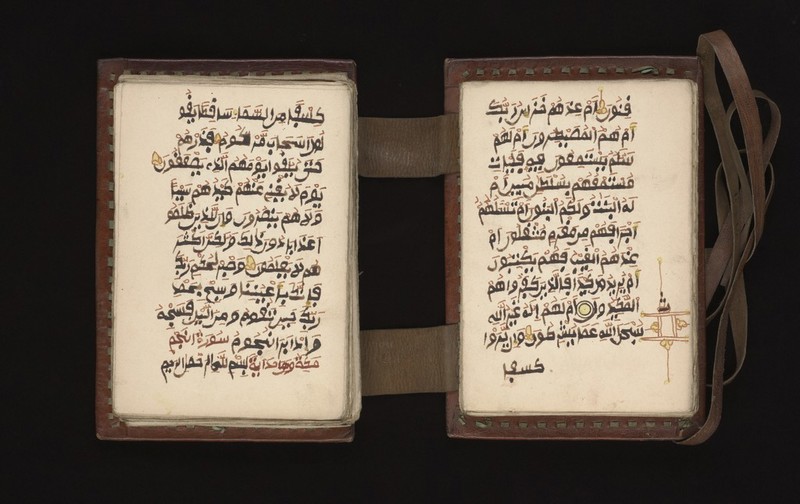 قنون أم عندهم خزائن ربك
أم هم المصيطرون أم لهم
سلم يستمعون فيه فليات
مستمعهم بسلطن مبين أم
له البنت ولكم البنون أم تسلهم
أجرا فهم من مغرم مثقلون أم
عندهم الغيب فهم يكتبون
أم يريدون كيدا فالذين كفروا هم
المكيدون أم لهم إله غير الله
سبحن الله عما يشركون وإن يروا
كسفا
كسفا من السماء ساقطا يقو
لوا سحاب مركوم فذرهم
حتى يلقوا يومهم الذي يصعقون
يوم لا يغني عنهم كيدهم شيئا
ولا هم ينصرون وإن للذين ظلموا
عذابا دون ذلك ولكن أكثر
هم لا يعلمون واصبر لحكم ربك
فإنك بأعيننا وسبح بحمد
ربك حين تقوم ومن الليل فسبحه
وإدبر النجوم سورة النجم
مكية وهي اية بسم الله الرحمن الرحيم